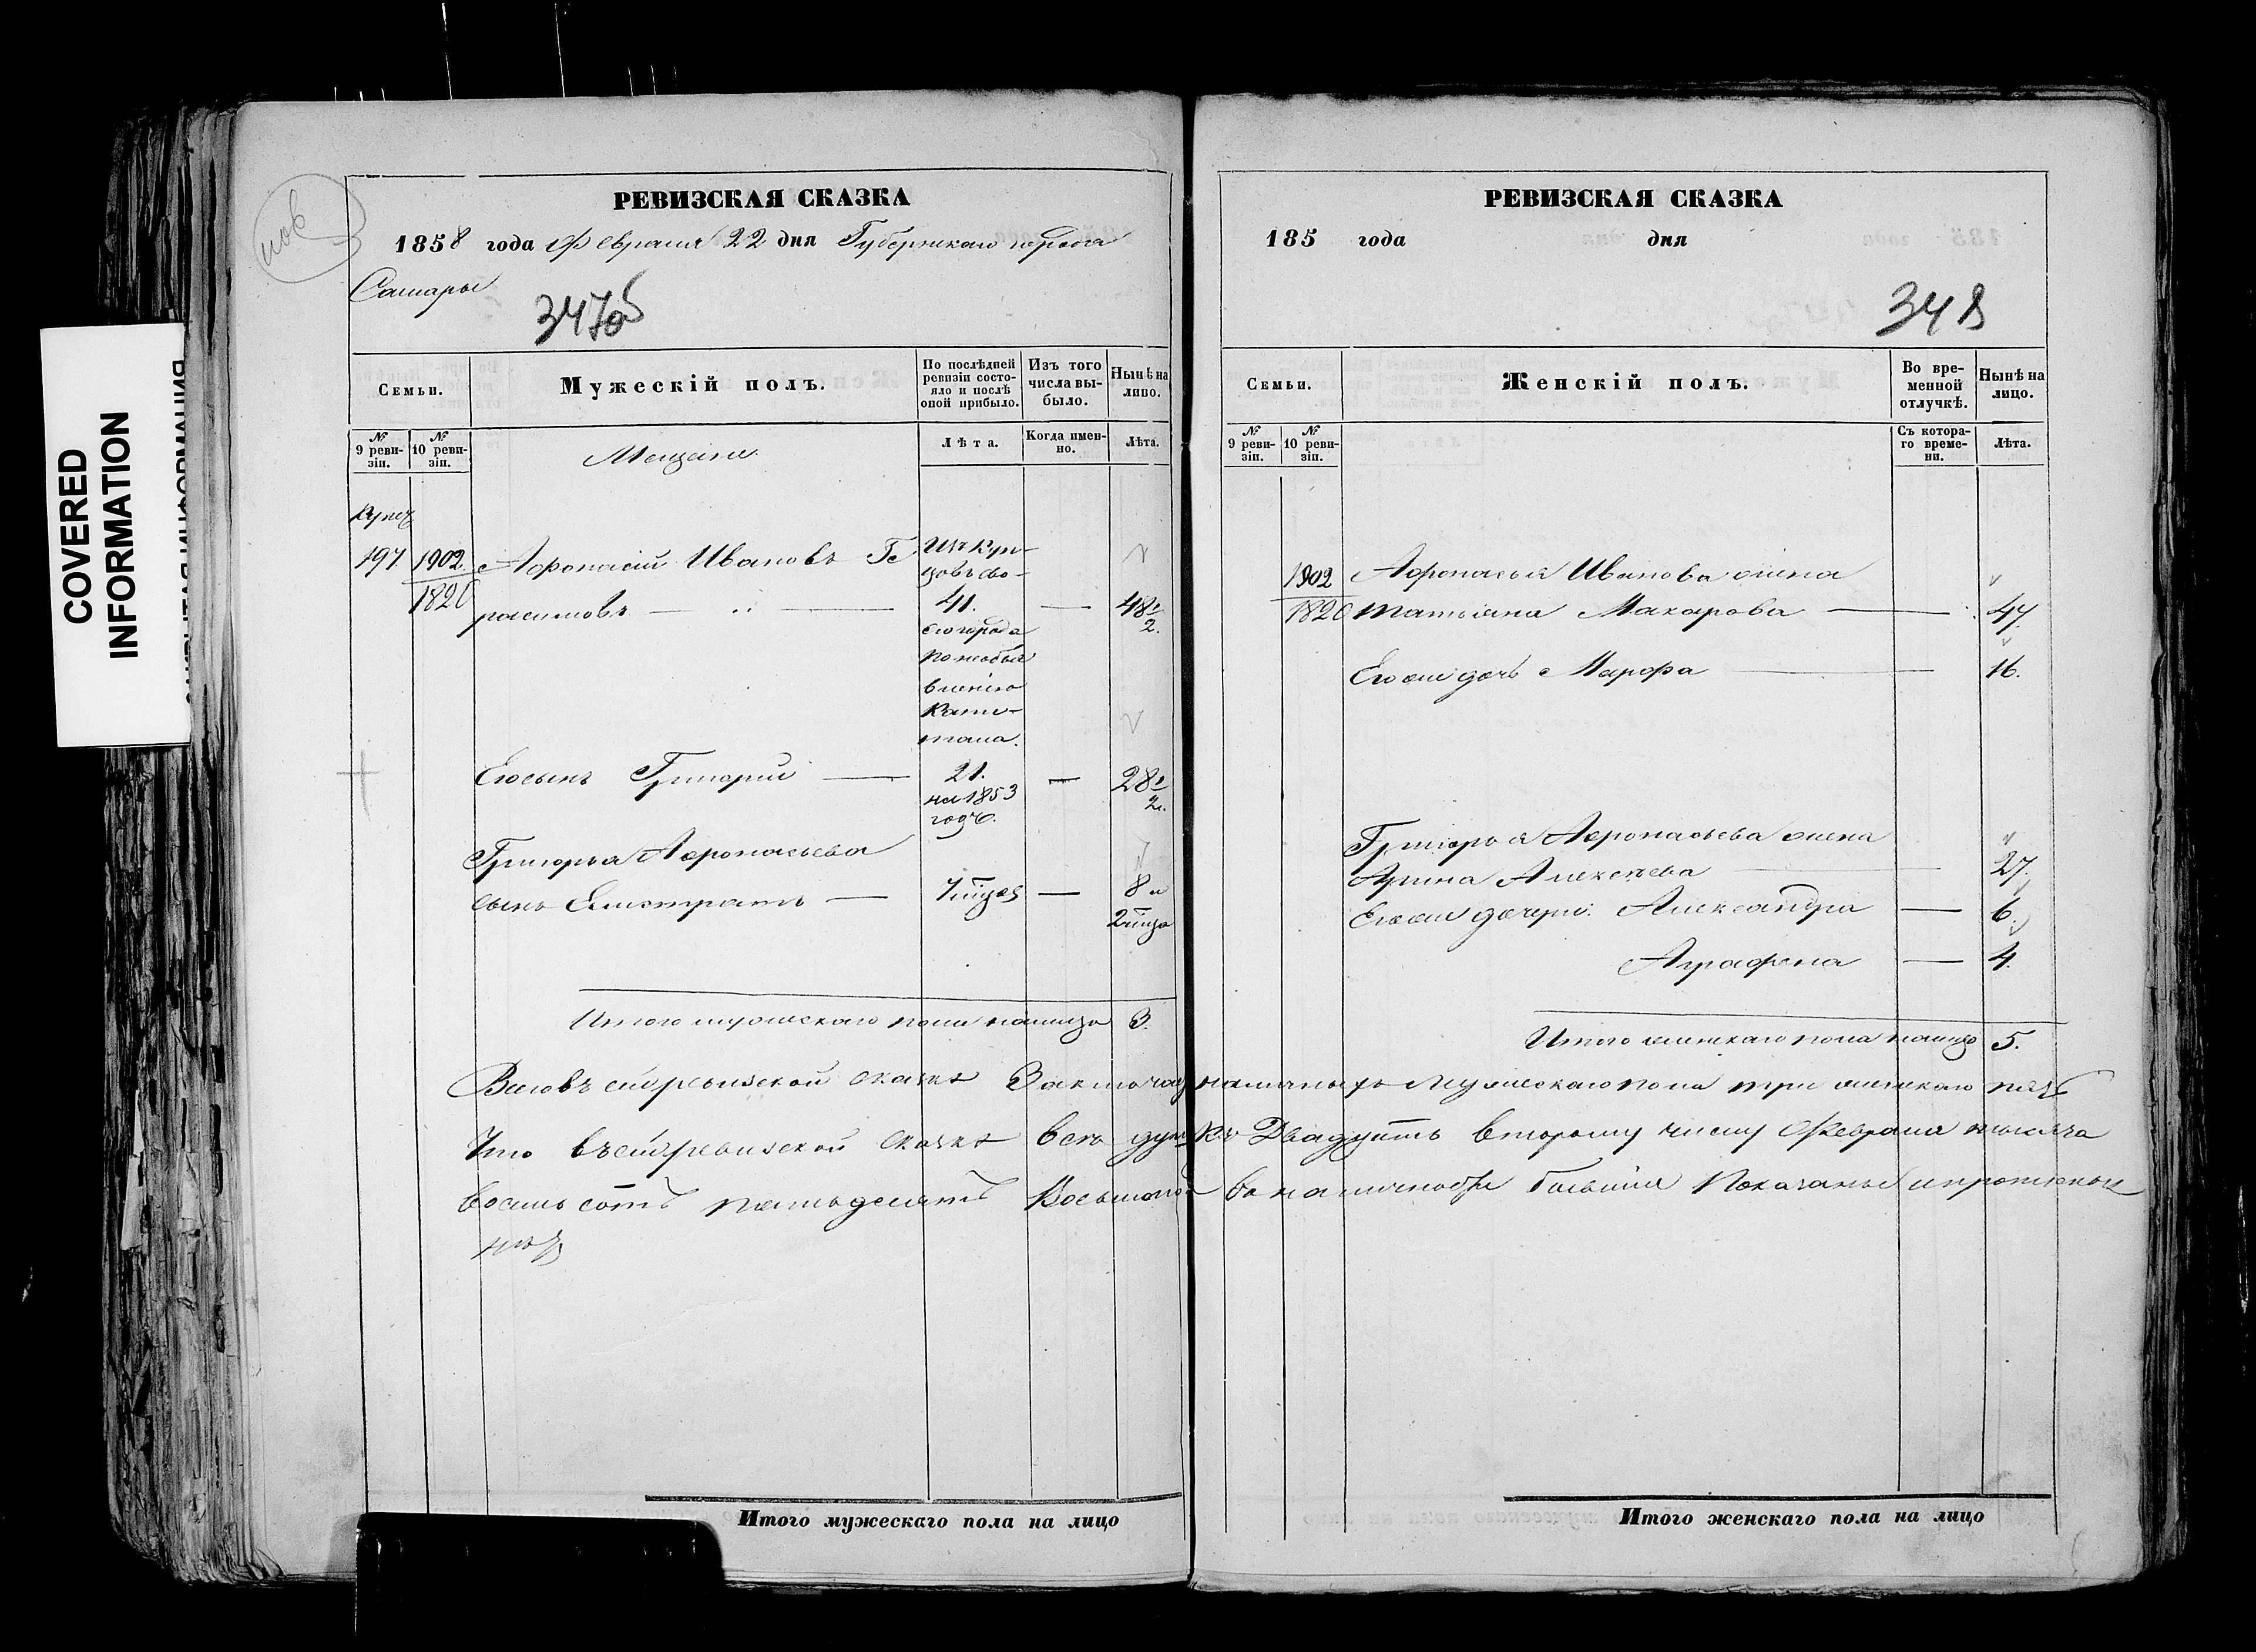 COVERED
INFORMATION
РЕВИЗСКАЯ СКАЗКА
1858 года Февраля 22 дня Губернскаго города
Самары
347об
Семьи.
Мужескій полъ.
По послѣдней ревизіи состо-
яло и послѣ
оной прибыло.
Изъ того
числа вы-
было.
Нынѣ на
лицо.
№
9 реви-
зіи.
№
10 реви-
зіи.
Мещане
Лѣта.
Когда имен-
но.
Лѣта.
Купеч
197 1902 Афонасій Ивановъ Ге
1820 расимовъ
Изъ Куп-
цовъ сво-
41.
его города
по необъя
вленію
Капи-
тала.
48 1/2.
Егосынъ Григорій — 21. — 28 1/2.
на 1853
годъ.
Григорья Афонасьева
сынъ Елистратъ —
8 и
Итого мужескаго пола налицо 3.
РЕВИЗСКАЯ СКАЗКА
185 года дня
348
Семьи.
Женскій полъ.
Во вре-
менной
отлучкѣ.
Нынѣ на
лицо.
№
9 реви-
зіи.
№
10 реви-
зіи.
Съ котора-
го време-
ни.
Лѣта.
1902 Афонасья Иванова жена
1820 Татьяна Макарова — 47.
Егоже дочь Марфа — 16.
Григорья Афонасьева жена
Арина Алексеева — 27.
Егоже дочери: Александра — 6.
Аграфена — 4.
Итого женскаго пола налицо 5.
Всего въ сей ревизской сказкѣ наличныхъ Мужескаго пола три женскаго пять
Что въ сей ревизской сказкѣ всѣ души къ Двадцать второму числу Февраля тысяча
восемьсотъ пятьдесятъ Восьмого въ наличности бывшія Показаны и
нѣтъ
Итого мужескаго пола на лицо
Итого женскаго пола на лицо